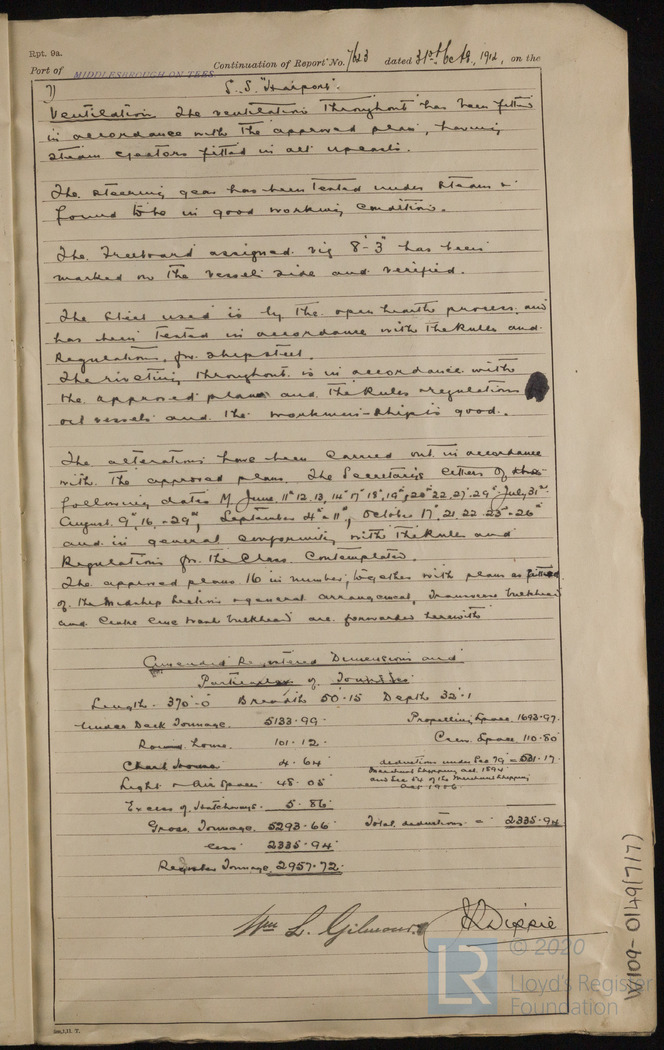 Rpt. 9a.
Port of MIDDLESBROUGH ON TEES Continuation of Report No. 7623 dated 31st Octr, 1912, on the
7) S.S. "Harport".
Ventilation The ventilation throughout has been fitted
in accordance with the approved plan, having
steam ejectors fitted in all upcasts.
The steering gear has been tested under steam &
found to be in good working condition.
The Freeboard assigned viz 8'-3" has been
marked on the vessels side and verified.
The steel used is by the open hearth process and
has been tested in accordance with the Rules and
Regulations for ship steel.
The riveting throughout is in accordance with
the approved plans and the Rules & regulations
oil vessels and the workman-ship is good.
The alterations have been carried out in accordance
with the approved plans. The Secretarys letters of
following dates M June, 11th 12, 13, 14th 17th 18th, 19th, 20th 22, 27 29th July 31st
August 9th, 16, & 29th, September 4th & 11th, October 17th, 21. 22. 25th & 26th
and in general conformity with the Rules and
Regulations for the Class Contemplated.
The approved plans 16 in number, together with plans as fitted
of the Midship Section & general arrangement, Transverse bulkhead
and Centre line bulkhead are forwarded herewith
Amended Registered Dimensions and
Particulars of Tonnage
Length. 370'.0 Breadth 50'.15 Depth 32'.1
Under Deck Tonnage 5133.99 Propelling Space 1693.97
Round house 101.12 Crew Space 110.80
Chart house 4.64 deductions under Sec 79 = 531.17
Merchant Shipping Act 1894
and Sec 54 of the Merchant Shipping
Act 1906
Light & Air Space 48.05
Excess of Hatchways 5.86
Gross Tonnage 5293.66 Total deductions = 2335.94
less 2335.94
Register Tonnage 2957.72
Wm L. Gilmour. Dippie
W109-0149(7/7)
© 2020
LR
Lloyd's Register
Foundation